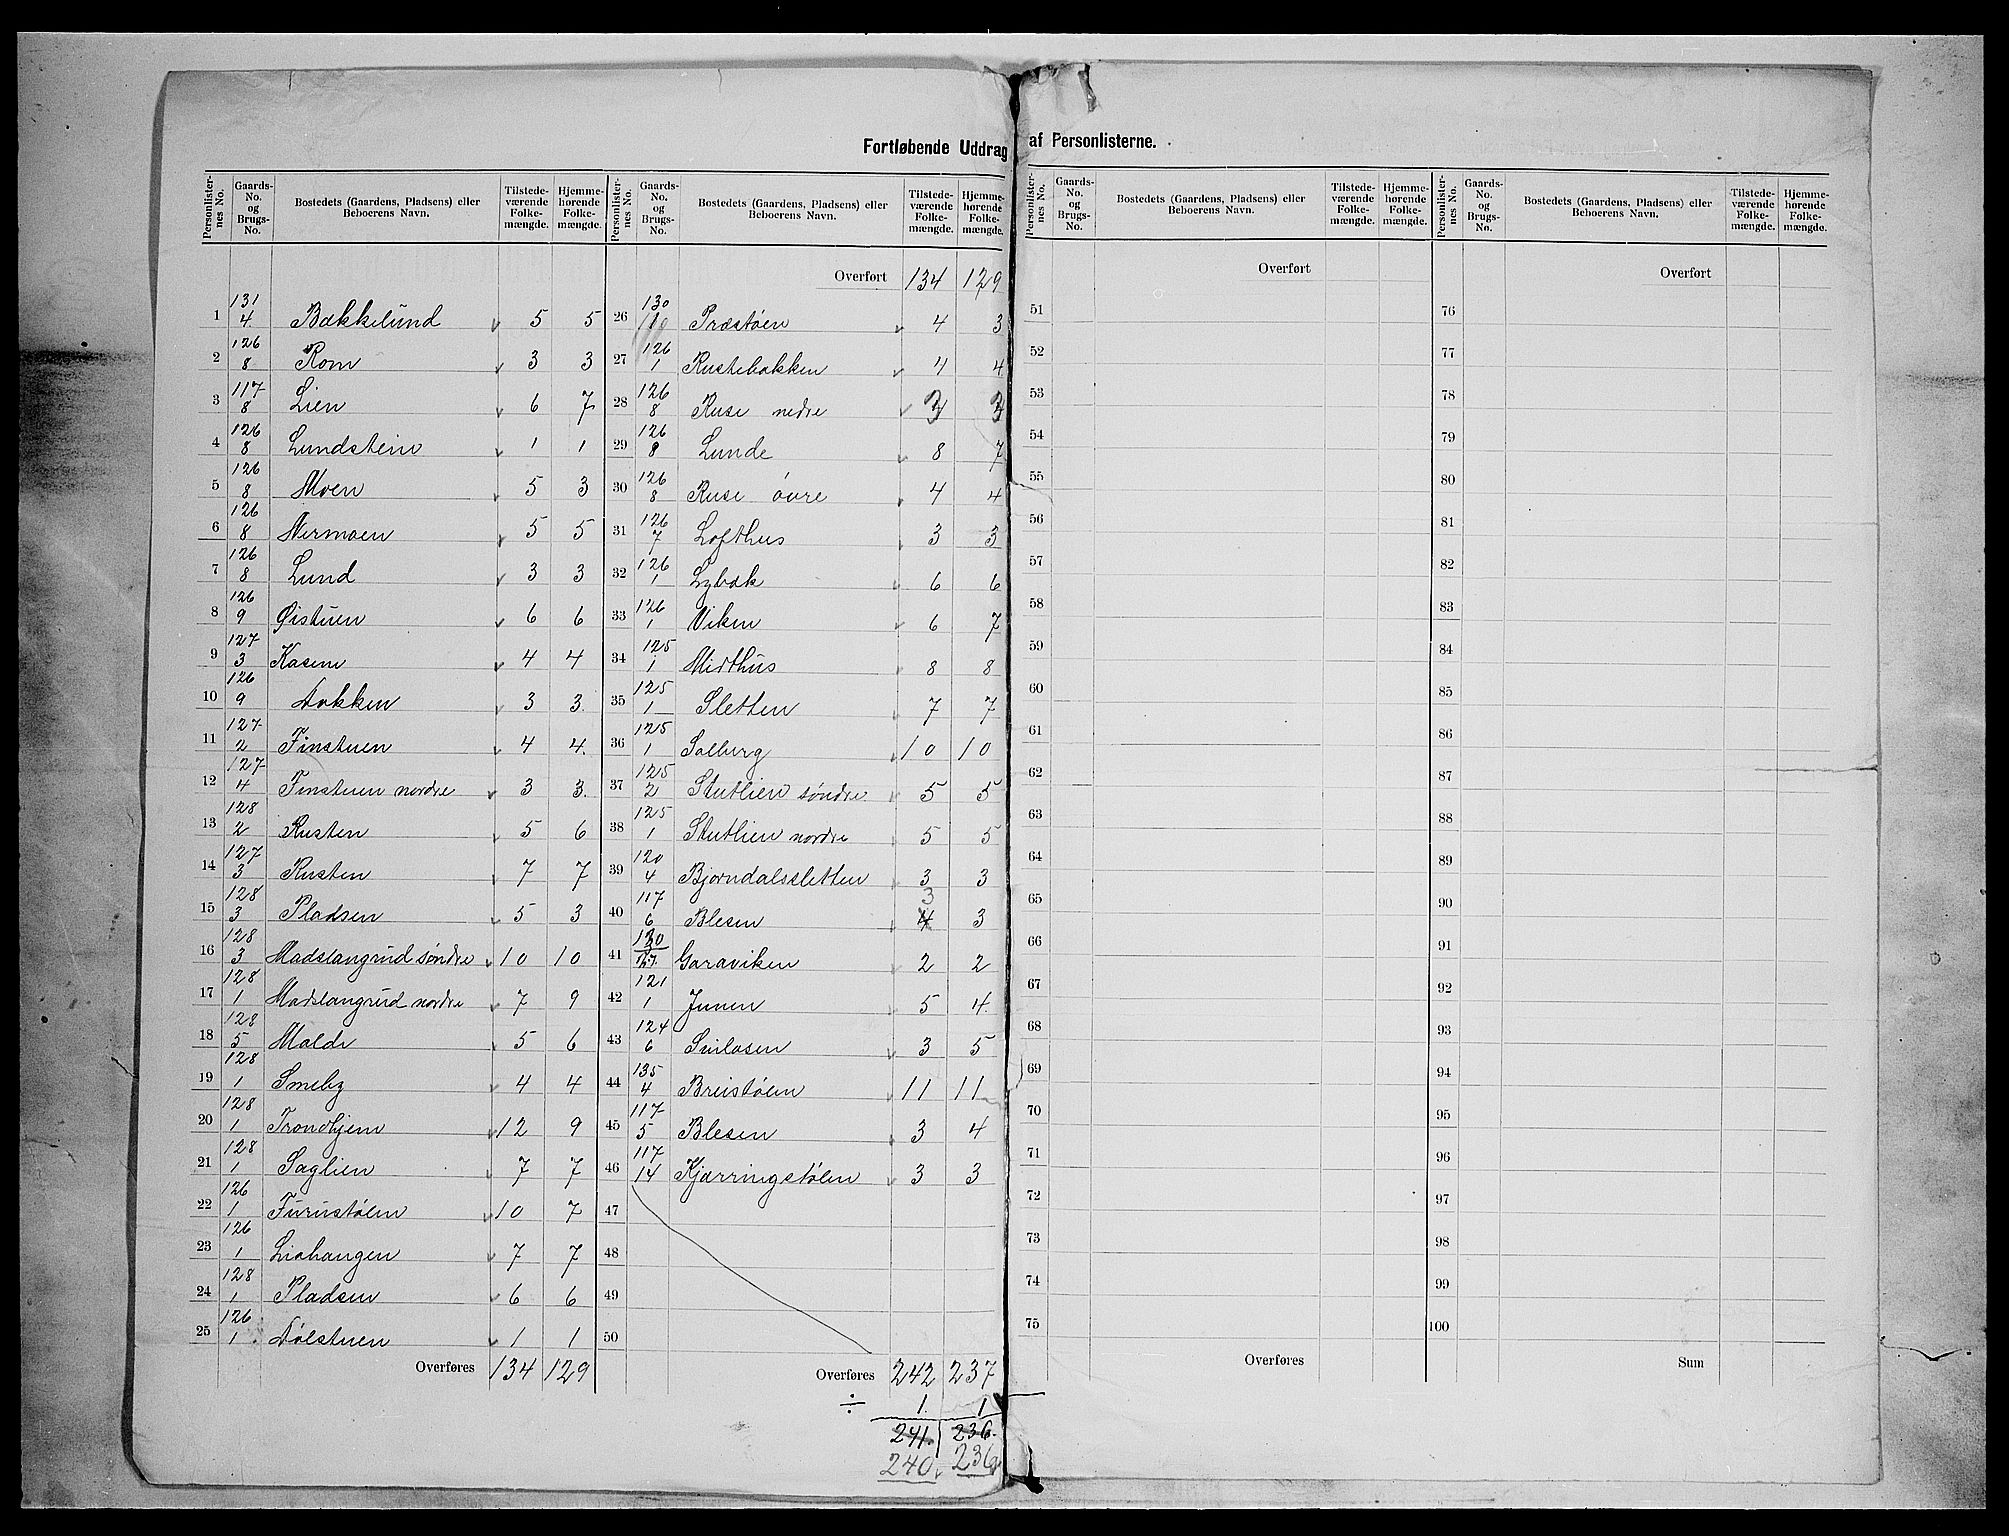 Fortløbende Uddrag af Personlisterne.
Personlister-nes No. | Gaards-No. og Brugs-No. | Bostedets (Gaardens, Pladsens) eller Beboerens Navn. | Tilstede-værende Folke-mængde. | Hjemme-hørende Folke-mængde.
1 131/4 Bækkelund 5 5
2 126/8 Rom 3 3
3 117/8 Lien 6 7
4 126/8 Lundstein 1 1
5 126/8 Moen 5 3
6 126/8 Nermoen 5 5
7 126/8 Lund 3 3
8 126/9 Øistuen 6 6
9 127/3 Kasen 4 4
10 126/9 Dokken 3 3
11 127/2 Finstuen 4 4
12 127/4 Finstuen nordre 3 3
13 128/2 Rusten 5 6
14 127/3 Rusten 7 7
15 128/3 Pladsen 5 3
16 128/3 Madslangrud søndre 10 10
17 128/1 Madslangrud nordre 7 9
18 128/5 Molde 5 6
19 128/1 Smeby 4 4
20 128/1 Trondhjem 12 9
21 128/1 Saglien 7 7
22 126/1 Furustølen 10 7
23 126/1 Liahaugen 7 7
24 128/1 Pladsen 6 6
25 126/1 Dølstuen 1 1
Overføres 134 129
Personlister-nes No. | Gaards-No. og Brugs-No. | Bostedets (Gaardens, Pladsens) eller Beboerens Navn. | Tilstede-værende Folke-mængde. | Hjemme-hørende Folke-mængde.
Overført 134 129
26 130/10 Præstøen 4 3
27 126/1 Rustebakken 4 4
28 126/8 Ruse nedre 3 3
29 126/8 Lunde 8 7
30 126/8 Ruse øvre 4 4
31 126/7 Lofthus 3 3
32 126/1 Lybæk 6 6
33 126/1 Viken 6 7
34 125/1 Midthus 8 8
35 125/1 Sletten 7 7
36 125/1 Solberg 10 10
37 125/2 Stutlien søndre 5 5
38 125/1 Stutlien nordre 5 5
39 120/4 Bjørndalssletten 3 3
40 117/6 Blesen 3 3
41 130/27 Garaviken 2 2
42 121/1 Junen 5 4
43 124/6 Svilosen 3 5
44 135/4 Breistølen 11 11
45 117/5 Blesen 3 4
46 117/14 Kjærringstølen 3 3
47
48
49
50
Overføres 242 237
÷ 1. 1
241. 236.
240 236
Personlister-nes No. | Gaards-No. og Brugs-No. | Bostedets (Gaardens, Pladsens) eller Beboerens Navn. | Tilstede-værende Folke-mængde. | Hjemme-hørende Folke-mængde.
Overført
51
52
53
54
55
56
57
58
59
60
61
62
63
64
65
66
67
68
69
70
71
72
73
74
75
Overføres
Personlister-nes No. | Gaards-No. og Brugs-No. | Bostedets (Gaardens, Pladsens) eller Beboerens Navn. | Tilstede-værende Folke-mængde. | Hjemme-hørende Folke-mængde.
Overført
76
77
78
79
80
81
82
83
84
85
86
87
88
89
90
91
92
93
94
95
96
97
98
99
100
Sum